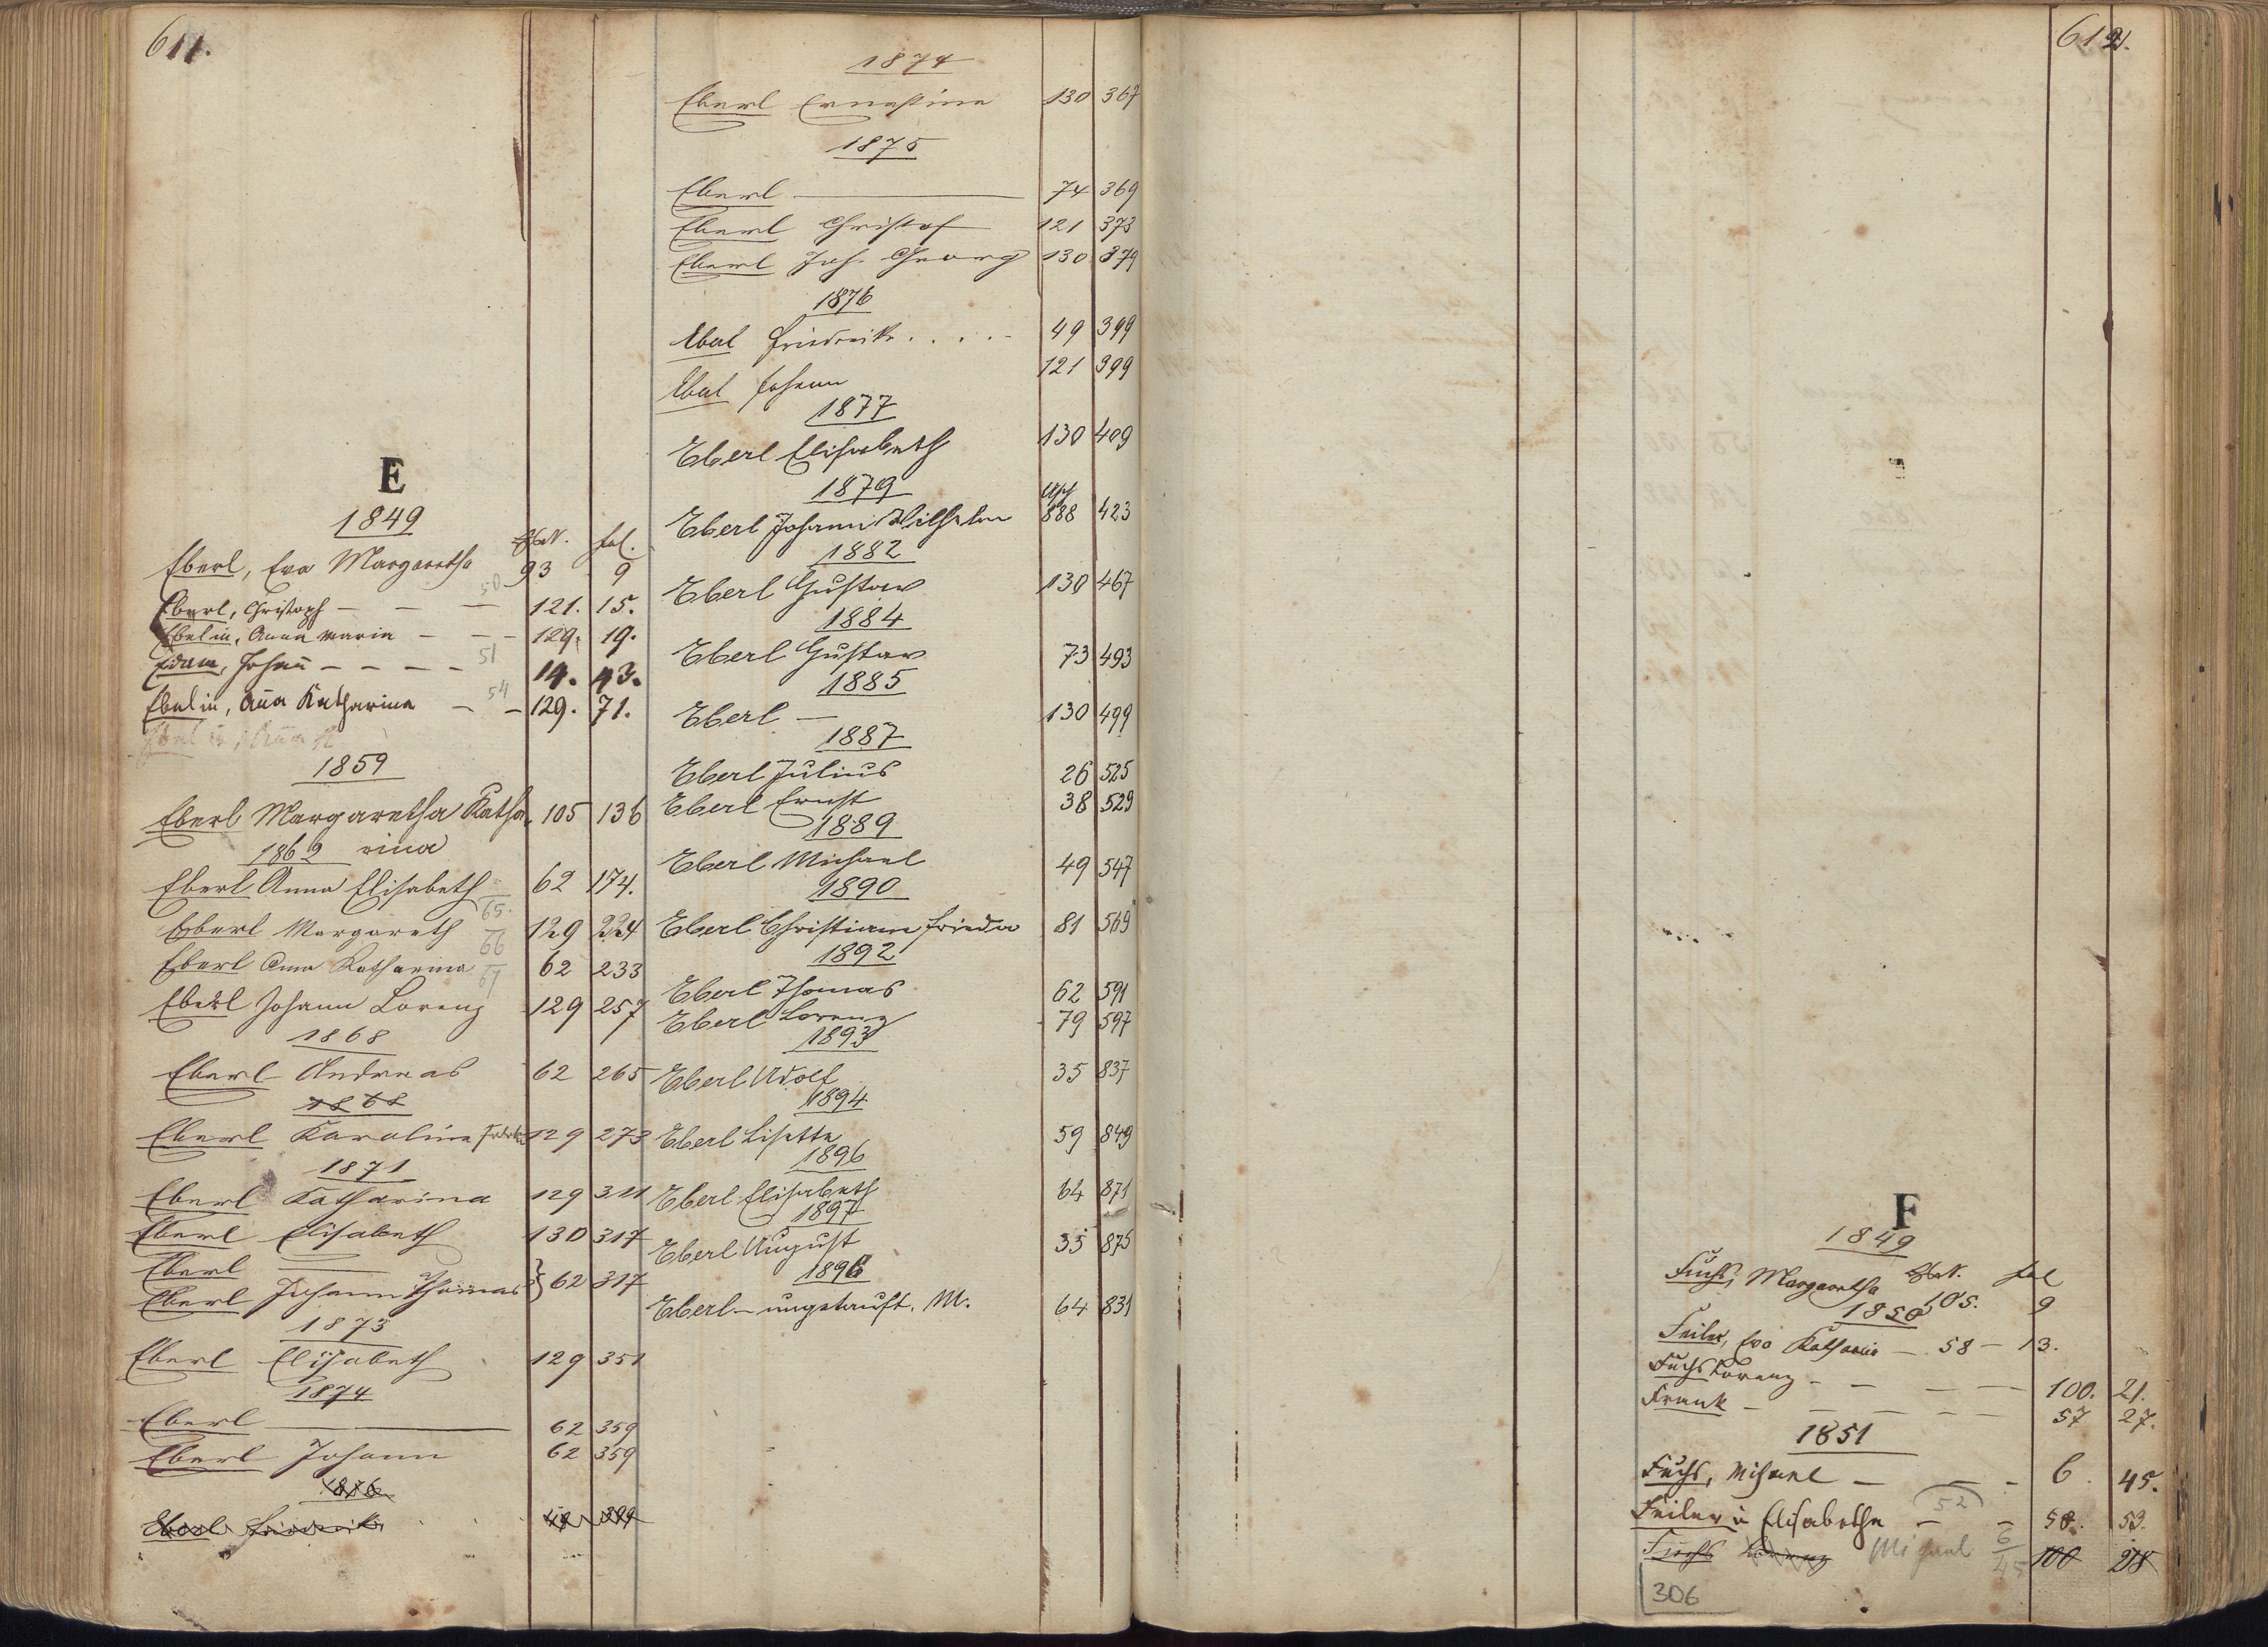 611.
E
1849
HsN. fol.
Eberl, Eva Margaretha 93 9
50
Eberl, Christoph — — — 121. 15.
Ebelin, Anna Maria — — — 129. 19.
51
Edam, Johann̄ — — — — 14. 43.
54
Ebelin, Año Katharina — — 129. 71.
1859
Eberl Margaretha Katha- 105 136
rina
1862
Eberl Anna Elisabeth 62 174.
65.
Eberl Margareth 129 224
66
Eberl Anna Katharina 62 233
67
Eberl Johann Lorenz 129 257
1868
Eberl Andreas 62 265
1868
Eberl Karoline 129 273
1871
Eberl Katharina 129 311
Eberl Elisabeth 130 317
Eberl ———
Eberl Johann Thomas } 62 317
1873
Eberl Elisabeth 129 351
1874
Eberl ——— 62 359
Eberl Johann 62 359
1876
Eberl Friederike 49 399
1874
Eberl Ernestine 130 367
1875
Eberl ——— 74 369
Eberl Christof 121 373
Eberl Joh. Georg 130 379
1876
Ebal Friederike . . . . . 49 399
Ebal Johann 121 399
1877
Eberl Elisabeth 130 409
1879
Eberl Johann Wilhelm 888 423
1882
Eberl Gustav 130 467
1884
Eberl Gustav 73 493
1885
Eberl — 130 499
1887
Eberl Julius 26 525
Eberl Ernst 38 529
1889
Eberl Michael 49 547
1890
Eberl Christiane Frieda 81 569
1892
Eberl Thomas 62 591
Eberl Lorenz 79 597
1893
Eberl Adolf 35 837
1894
Eberl Lisette 59 849
1896
Eberl Elisabeth 64 871
1897
Eberl August 35 875
1896
Eberl — ungetauft. M. 64 831
612.
F
1849
HsN. fol
Fuchs, Margaretha 105. 9
1850
Feiler, Eva Katharin — 58 — 13.
Fuchs Lorenz — — — — 100. 21.
Frank — — — — — 57 27.
1851
Fuchs, Michael — — — 6. 45.
52
Feilerin Elisabetha — — 58. 53.
Fuchs Lorenz Michael 6 45 100 218
306